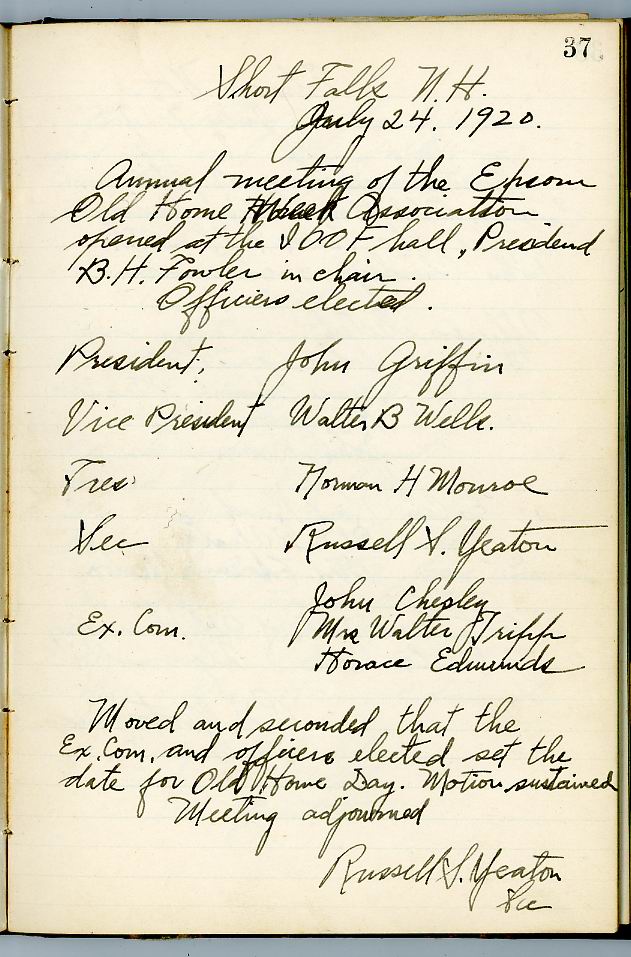 37
Short Falls N.H.
July 24. 1920.
Annual meeting of the Epsom
Old Home Week Association
opened at the I O O F hall, President
B.H. Fowler in chair.
Officiers elected.
President, John Griffin
Vice President Walter B Wells.
Tres Norman H Monroe
Sec Russell S. Yeaton
John Chesley
Ex. Com. Mrs Walter Tripp
Horace Edmunds
Moved and seconded that the
Ex. Com. and officiers elected set the
date for Old Home Day. Motion sustained
Meeting adjourned
Russell S. Yeaton
Sec